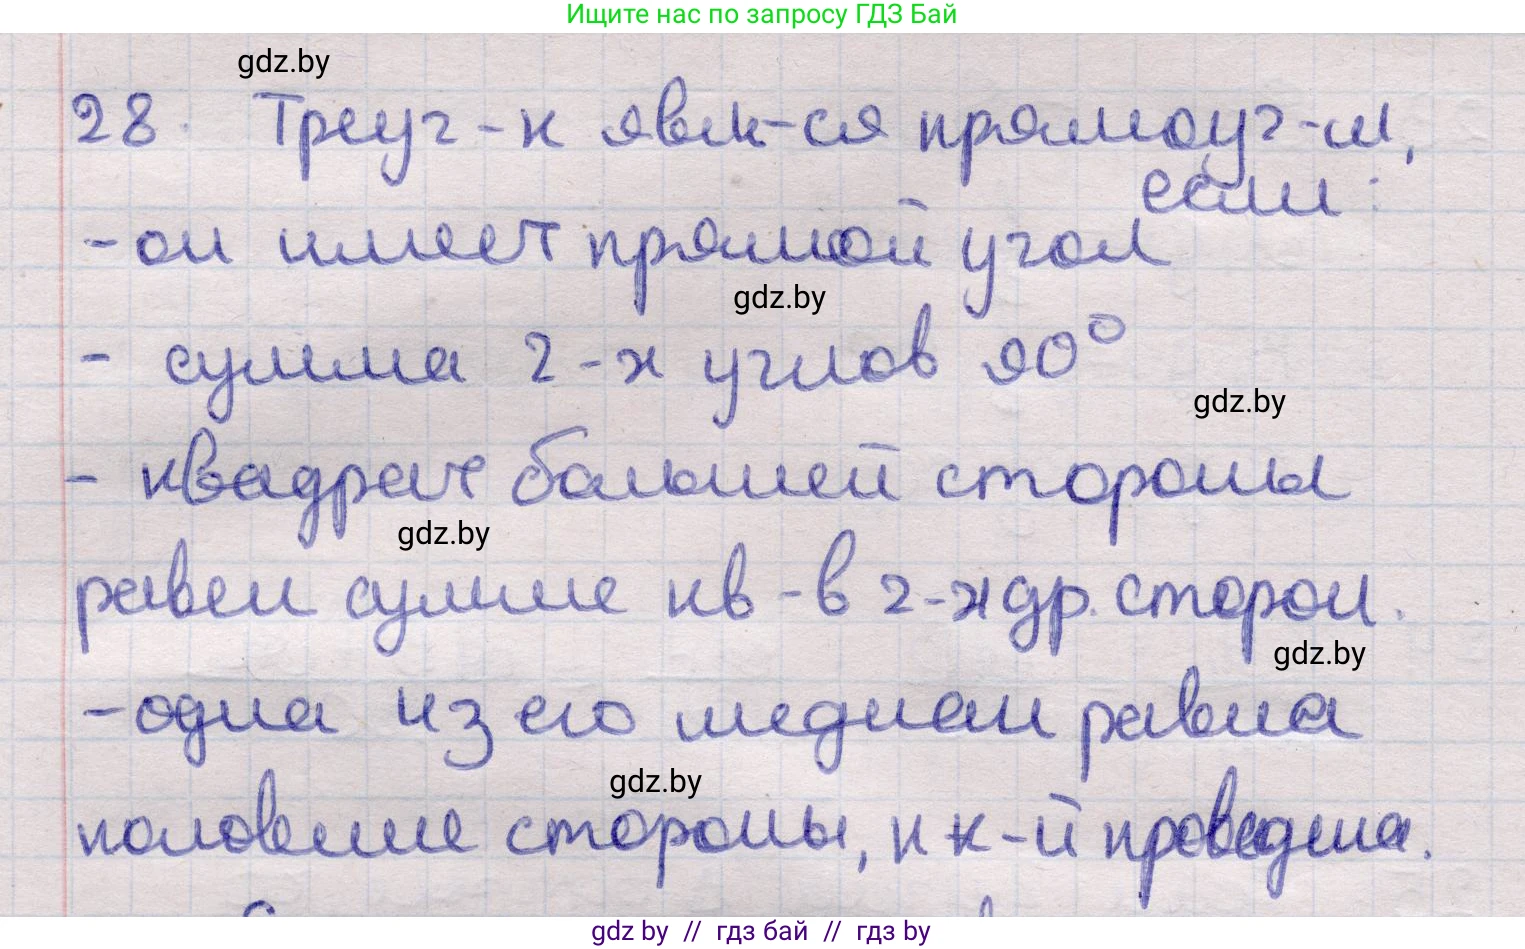 Ищите нас по запросу ГДЗ Бай
gdz.by
28. Треуг-к явл-ся прямоуг-м,
если:
- он имеет прямой угол
gdz.by
- сумма 2-х углов 90°
gdz.by
- квадрат большей стороны
gdz.by
равен сумме кв-в 2-х др. сторон.
gdz.by
- одна из его медиан равна
gdz.by
половине стороны, к к-й проведена.
gdz by // гдз бай // гдз by